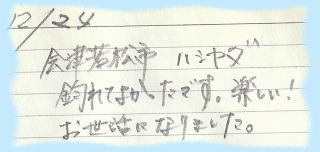 12/24
会津若松市 ハシヤダ
釣れてよかったです。楽しい!
お世話になりました。